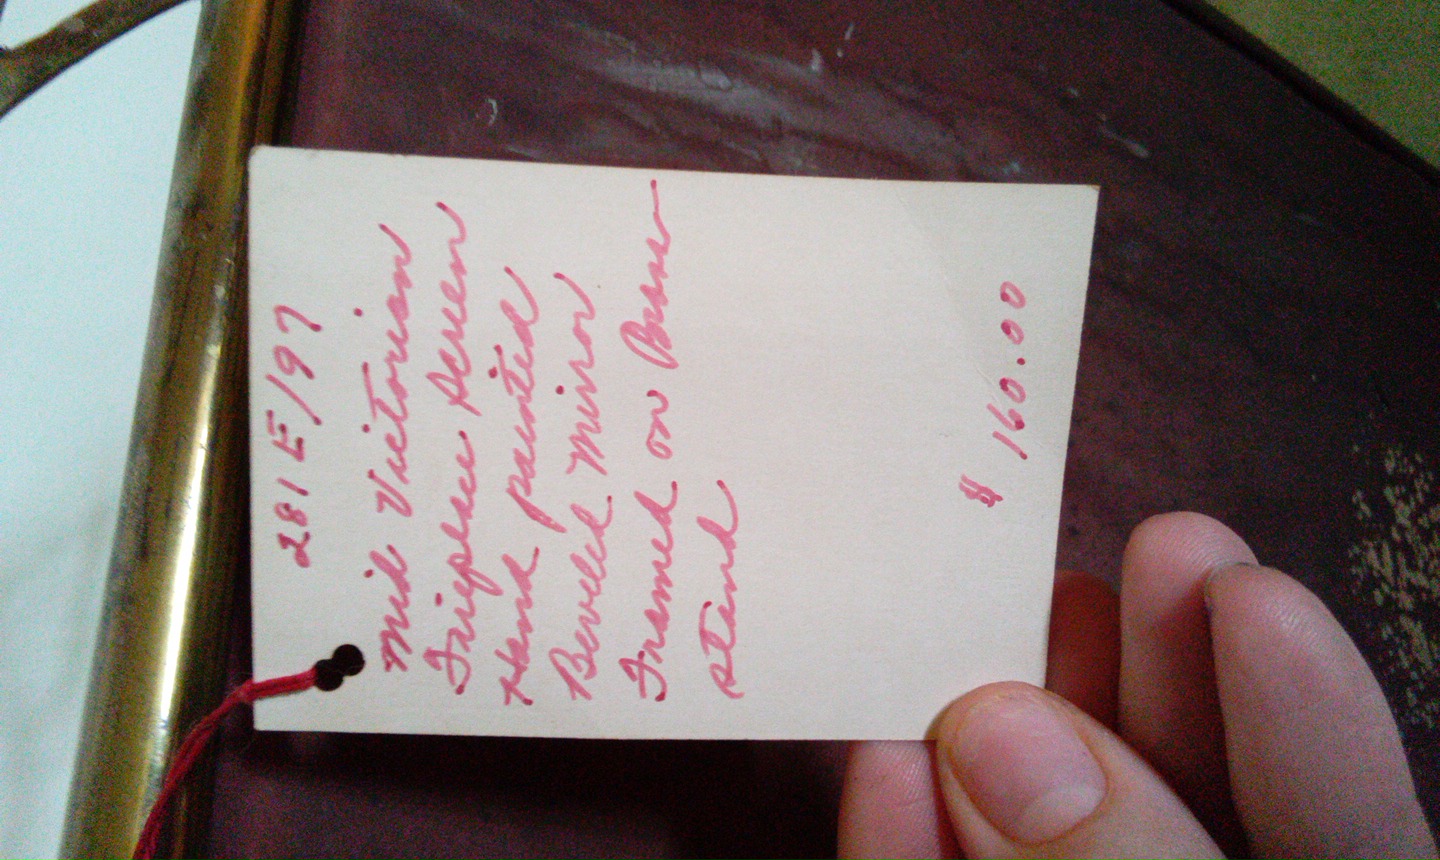 281 E/97
Mid Victorian
Fireplace screen
Hand painted
Beveled Mirror
Framed on Brass
stand
$ 160.00